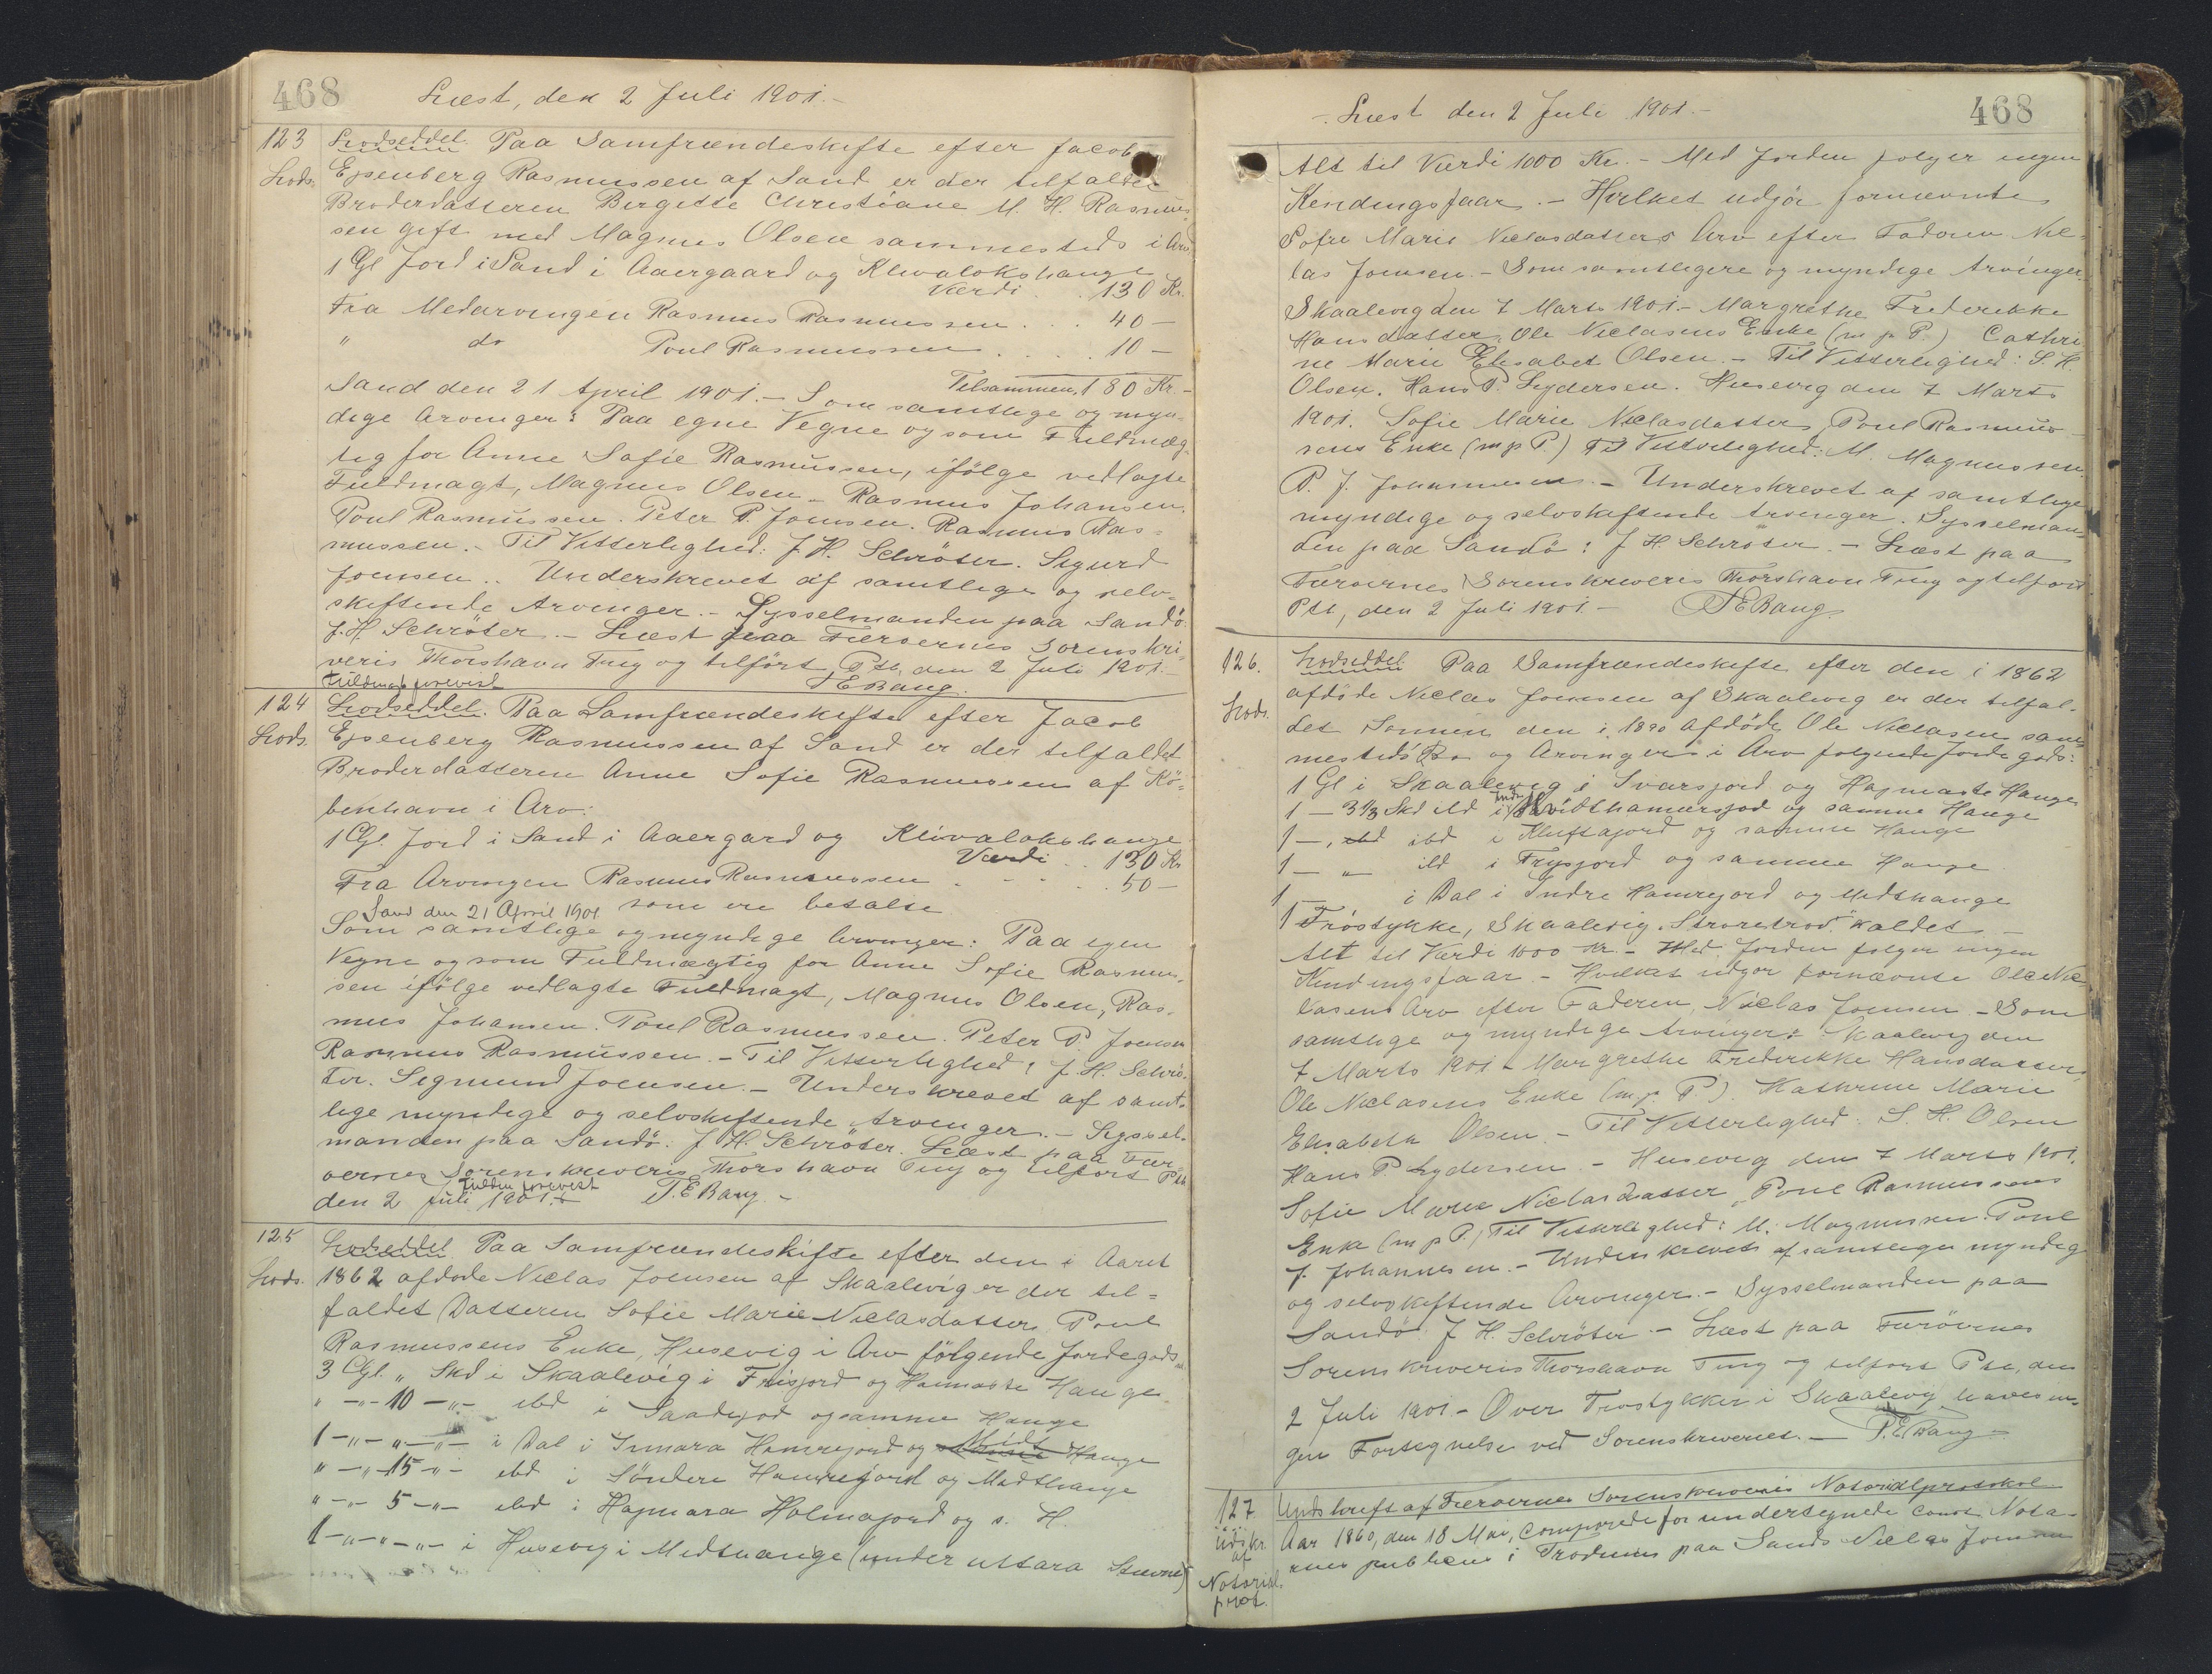 468
Læst, den 2 Juli 1901.-
123
Lods.
Lodseddel. Paa Samfrændeskifte efter Jacob
Espenberg Rasmussen af Sand er der tilfaldet
Broderdatteren Birgitte Christiane M. H. Rasmus-
sen gift med Magnus Olsen sammesteds i Arv
1 Gl Jord i Sand i Aaergaard og Klivalokshauge
Værdi . . 130 Kr.
Fra Medarvingen Rasmus Rasmussen . . . 40 —
" do Poul Rasmussen . . . . 10 —
Tilsammen 180 Kr.-
Sand den 21 April 1901. - Som samtlige og myn-
dige Arvinger: Paa egne Vegne og som Fuldmæg-
tig for Anne Sofie Rasmussen, ifölge vedlagte
Fuldmagt, Magnus Olsen - Rasmus Johansen.
Poul Rasmussen. Peter P. Joensen. Rasmus Ras-
mussen. - Til Vitterlighed: J. H. Schröter. Sigurd
Joensen .. Underskrevet af samtlige og selv-
skiftende Arvinger. - Sysselmanden paa Sandö:
J. H Schröter. - Læst paa Færoernes Sorenskri-
veris Thorshavn Ting og tilfört Ptk. den 2 Juli 1901.
Fuldmagt forevist T E Bang.
124
Lods.
Lodseddel. Paa Samfrændeskifte efter Jacob
Espenberg Rasmussen af Sand er der tilfaldet
Broderdatteren Anne Sofie Rasmussen af Kö-
benhavn i Arv:
1 Gl. Jord i Sand i Aaergard og Klivalokshauge
Værdi . . 130 Kr
Fra Arvingen Rasmus Rasmussen . . . . . 50 —
Sand den 21 April 1901. som ere betalte
Som samtlige og myndige Arvinger: Paa egen
Vegne og som Fuldmægtig for Anne Sofie Rasmus-
sen ifölge vedlagte Fuldmagt, Magnus Olsen, Ras-
mus Johansen. Poul Rasmussen. Peter P. Joensen
Rasmus Rasmussen. - Til Vitterlighed: J. H. Schrö-
ter. Sigmund Joensen. - Underskrevet af samt-
lige myndige og selvskiftende Arvinger. - Syssel-
manden paa Sandö: J. H. Schröter. Læst paa Fær-
oernes Sorenskriveris Thorshavn Ting og tilfört Ptk
den 2 Juli 1901. Fuldm forevist T. E Bang. -
125
Lods.
Lodseddel. Paa Samfrændeskifte efter den i Aaret
1862 afdøde Niclas Joensen af Skaalevig er der til-
faldet Datteren Sofie Marie Niclasdatter, Poul
Rasmussens Enke, Husevig i Arv fölgende Jordegods
3 Gl. " Skd i Skaalevig i Frisjord og Hajmaste Hauge
" -"- 10 -"- ibd i Saadsjod og samme Hauge
1 -"- "-"- i Dal i Innara Hamrejord og Midt Hauge
" -"- 15 -"- ibd i Söndere Hamrejord og Midthauge
" -"- 5 -"- ibd i Hajmara Holmajord og s. H.
1 -"-"-"- i Husevig i Midthauge (under uttara Stuvne)
468
- Læst den 2 Juli 1901.-
Alt til Værdi 1000 Kr. - Med Jorden følger ingen
Kendingsfaar. - Hvilket udgör fornævnte
Sofie Marie Niclasdatters Arv efter Faderen Nic-
las Joensen. - Som samtligere og myndige Arvinger.
Skaalevig den 7 Marts 1901. - Margrethe Frederikke
Hansdatter, Ole Niclasens Enke (m. p. P.) Cathri-
ne Marie Elisabet Olsen. - Til Vitterlighed: S. H.
Olsen. Hans P. Lydersen. Husevig den 7 Marts
1901. Sofie Marie Niclasdatter, Poul Rasmus-
sens Enke (m p P.) Til Vitterlighed: M. Magnussen.
P. J. Johannesen. - Underskrevet af samtlige
myndige og selvskiftende Arvinger. Sysselman-
den paa Sandö: J H. Schröter. - Læst paa
Færoernes Sorenskriveris Thorshavn Ting og tilført
Ptk, den 2 Juli 1901. - T E Bang.
126.
Lods.
Lodseddel. Paa Samfrændeskifte efter den i 1862
afdøde Niclas Joensen af Skaalevig er der tilfal-
det Sønnen den i 1890 afdöde Ole Niclasen sam-
mesteds Bo og Arvinger i Arv følgende Jordegods:
1 Gl i Skaalevig i Svarsjord og Hajmaste Hauge
1 — 3 1/3 Skd ibd i Indre Hvidthamersjod og samme Hauge
1 —, ibd i Kluftajord og samme Hauge
1 — " ibd i Frysjord og samme Hauge
1 — i Dal i Indre Hamrejord og Midthauge
1 Tröstykke, Skaalevig. Stroretrod. kaldet -
Alt til Værdi 1000 Kr. - Med Jorden følger ingen
Kendingsfaar. - Hvilket udgør fornævnte Ole Nic-
lasens Arv efter Faderen, Niclas Joensen - Som
samtlige og myndige Arvinger: Skaalevig den
7 Marts 1901 - Margrethe Frederikke Hansdatter,
Ole Niclasens Enke (m. p. P.). Kathrine Marie
Elisabeth Olsen. - Til Vitterlighed: S. H. Olsen
Hans P Lydersen. - Husevig den 7 Marts 1901.
Sofie Marie Niclasdatter, Poul Rasmussens
Enke (m p P.) Til Vitterlighed: M. Magnussen. Poul
J. Johannesen. - Underskrevet af samtlige myndig
og selvskiftende Arvinger. - Sysselmanden paa
Sandö: J H. Schröter. - Læst paa Færöernes
Sorenskriveris Thorshavn Ting og tilført Ptk, den
2 Juli 1901. - Over Trøstykker i Skaalevig haves in-
gen Fortegnelse ved Sorenskriveriet. - T. E Bang.
127
Udskr.
af
Notorial-
prot.
Udskrift af Færoernes Sorenskriveris Notorialprotokol
Aar 1860, den 18 Mai, comparerede for undertegnede const. Nota-
rius publicus i Trodum paa Sandö Niclas Joensen